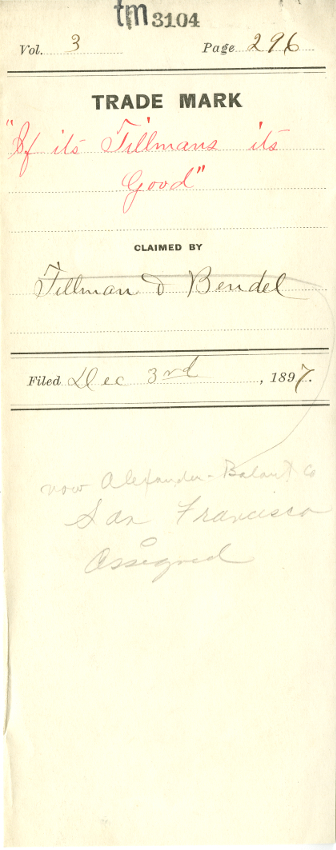 tm 3104
Vol. 3 Page 296
TRADE MARK
"If its Tillmans its
Good"
CLAIMED BY
Tillman & Bendel
Filed Dec 3rd, 1897.
now Alexander-Balart Co
San Francisco
Assigned